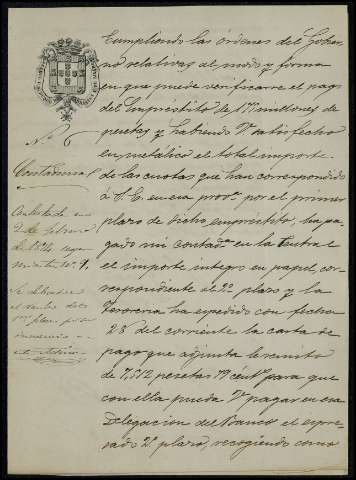 Cumpliendo las órdenes del Gobier
no relativas al modo y forma
en que puede verificarse el pago
del Empréstito de 175 millones de
pesetas y habiendo V. satisfecho
en metálico el total importe
de las cuotas que han correspondido
á V. E. en esa prov.ª por el primer
plazo de dicho empréstito, ha pa-
gado mi contad.ª en la Central
el importe integro en papel, co-
rrespondiente al 2.º plazo y la
Tesorería ha expedido con fecha
28 del corriente la carta de
pago que adjunta le remito
de 7,312 pesetas 79 cént.s para que
con ella pueda V. pagar en esa
Delegacion del Banco el expre-
sado 2.º plazo, recogiendo como
N.º 6
Contaduría
Contestada en
2 de febrero
de 1874